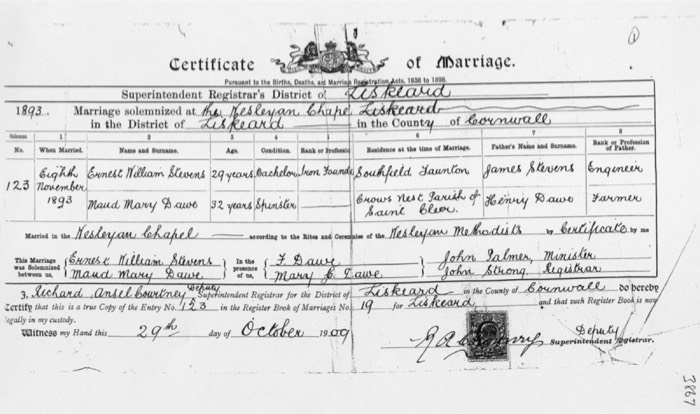 Certificate of Marriage.
Pursuant to the Births, Deaths, and Marriage Registration Acts, 1836 to 1898.
Superintendent Registrar's District of Liskeard
1893. Marriage solemnized at the Wesleyan Chapel Liskeard
in the District of Liskeard in the County of Cornwall
1 2 3 4 5 6 7 8
No. When Married. Name and Surname. Age. Condition. Rank or Profession Residence at the time of Marriage. Father's Name and Surname. Rank or Profession of Father.
123 Eighth November 1893
Ernest William Stevens 29 years Bachelor Iron Founder Southfield Taunton James Stevens Engineer
Maud Mary Dawe 32 years Spinster Crows nest Parish of Saint Cleer Henry Dawe Farmer
Married in the Wesleyan Chapel according to the Rites and Ceremonies of the Wesleyan Methodists by Certificate by me
This Marriage was Solemnized between us, Ernest William Stevens Maud Mary Dawe In the presence of us, F Dawe Mary E Dawe John Palmer, Minister John Strong, Registrar
I, Richard Ansel Courtney Deputy Superintendent Registrar for the District of Liskeard in the County of Cornwall do hereby
Certify that this is a true Copy of the Entry No. 123 in the Register Book of Marriages No. 19 for Liskeard and that such Register Book is now
legally in my custody.
Witness my Hand this 29th day of October 1909
Deputy
Superintendent Registrar.
3867